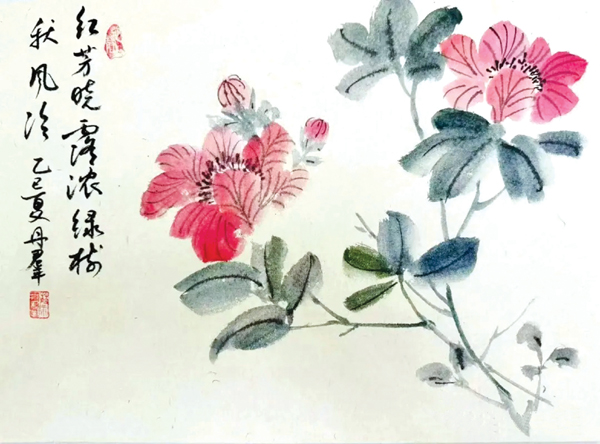 红芳晓露浓绿树
秋风冷 乙巳夏丹群